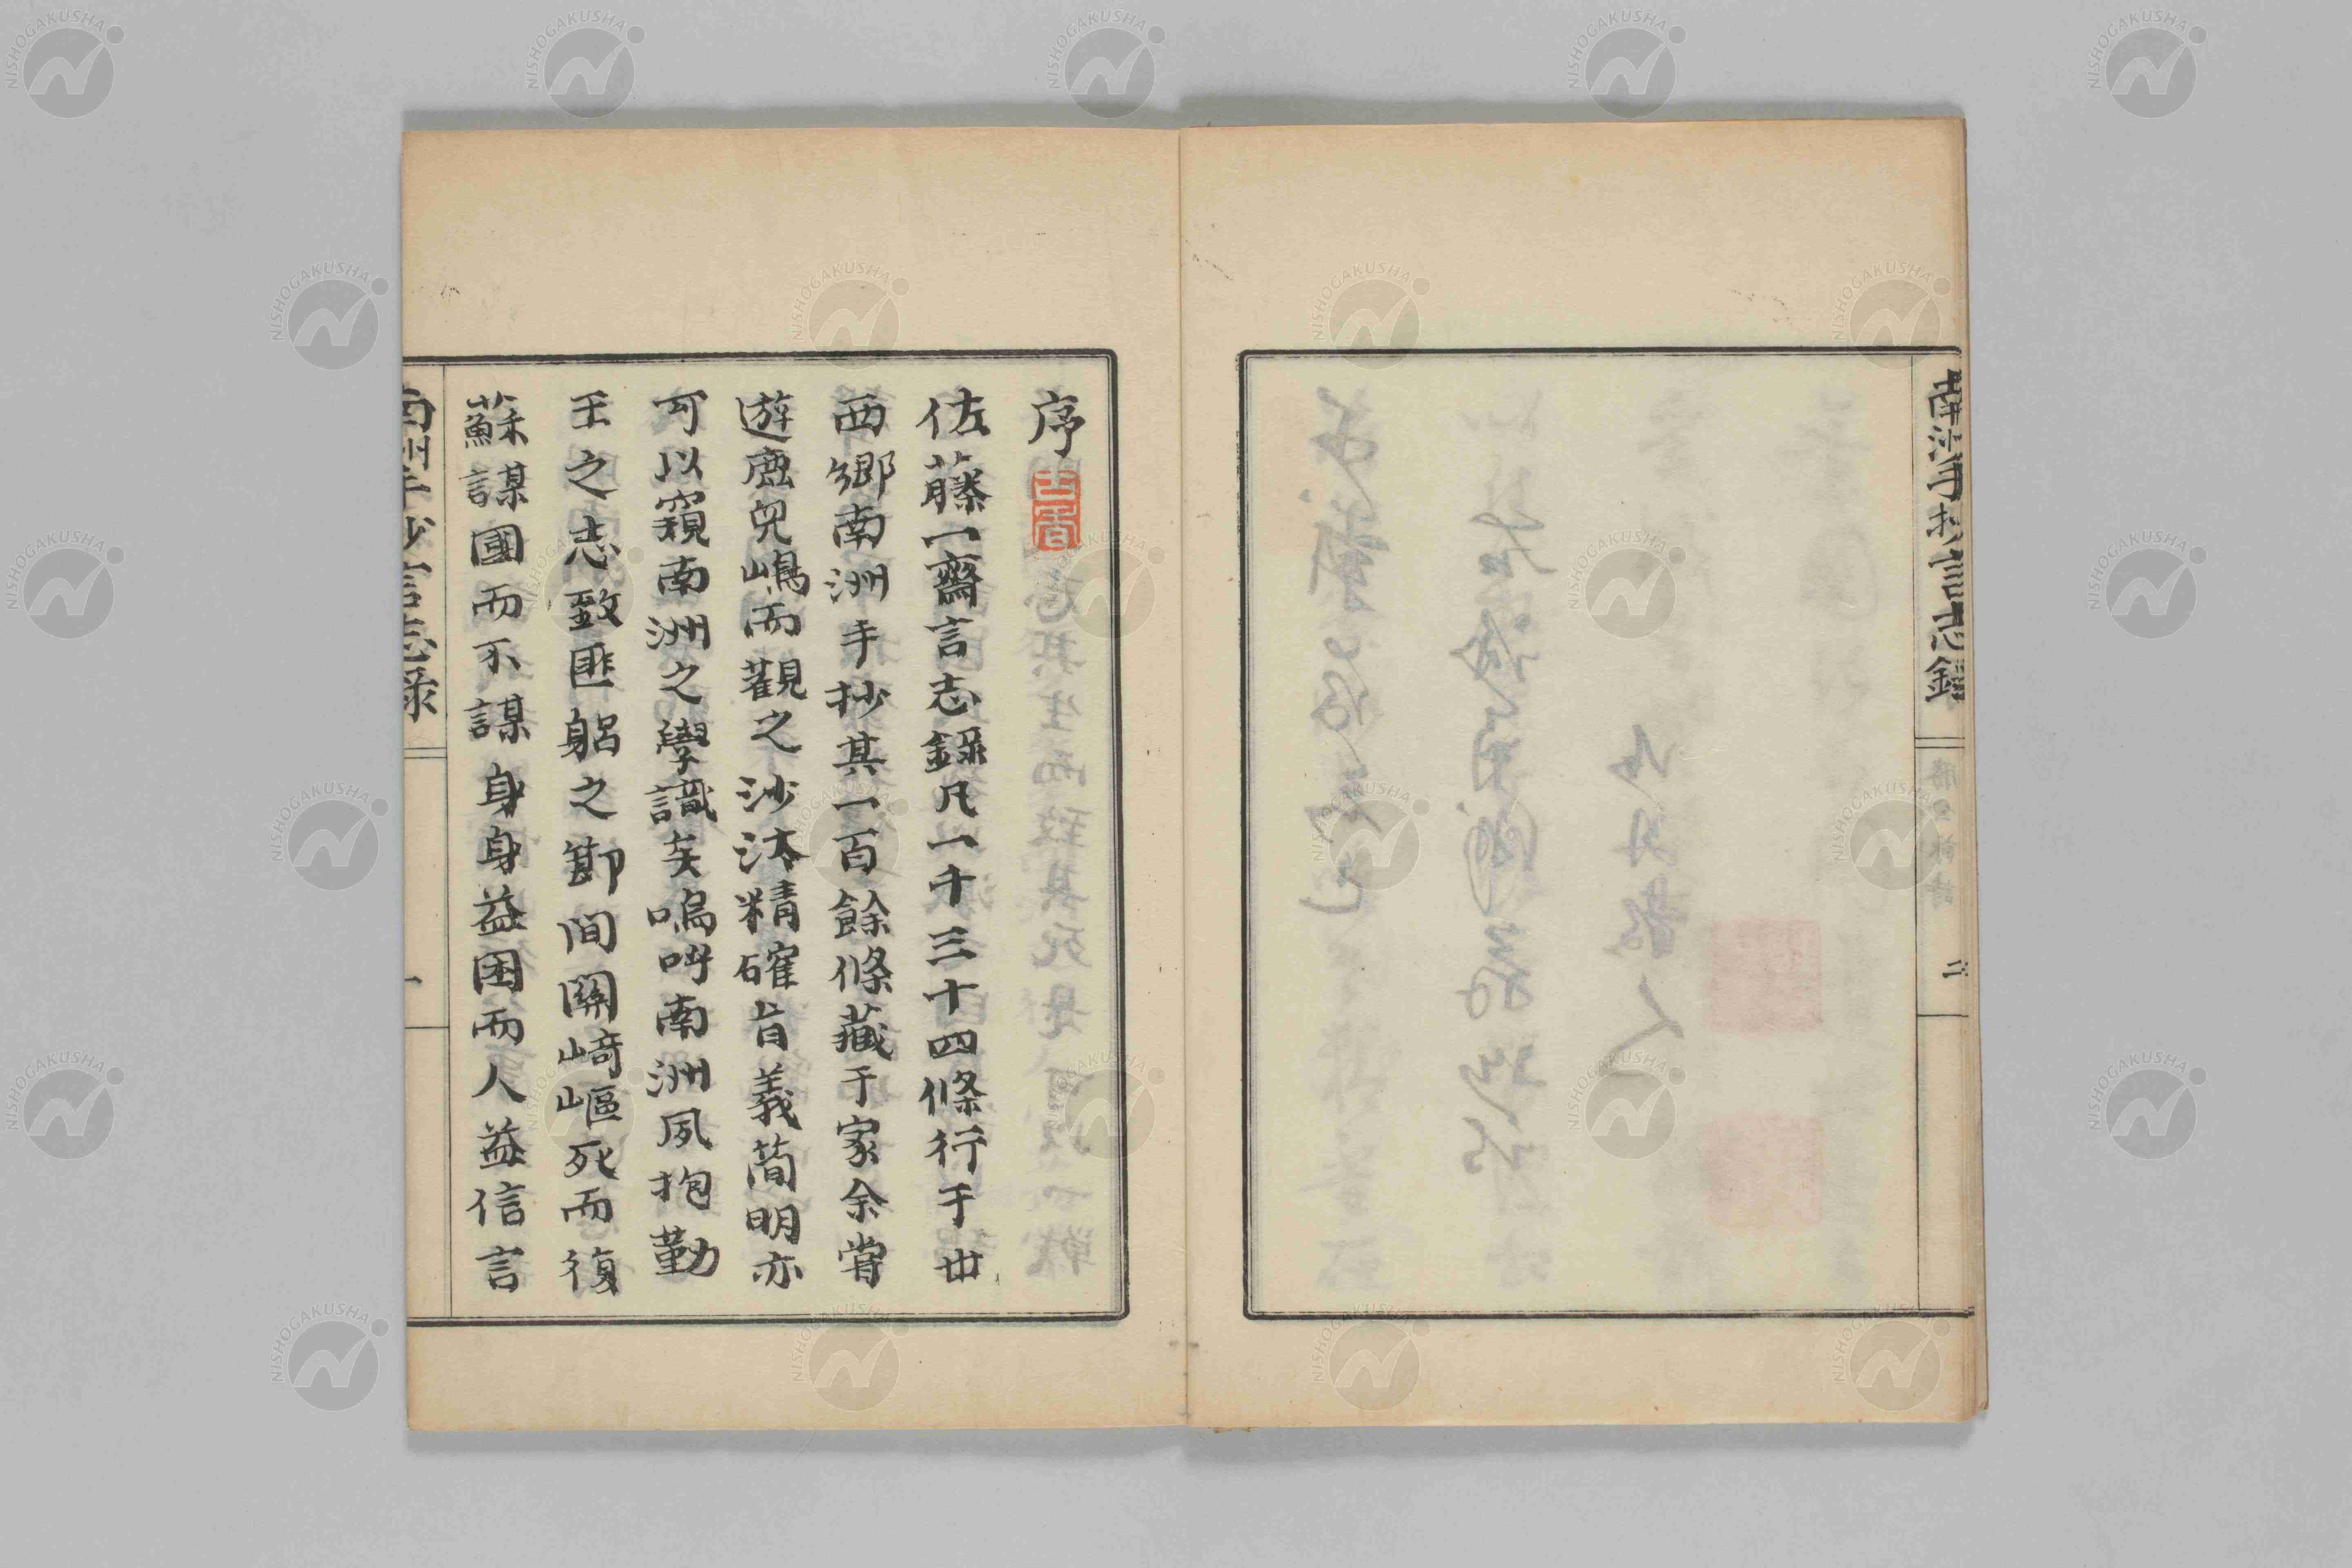 南洲手抄言志録
二
序
佐藤一齋言志錄凡一千三十四條行于世
西鄉南洲手抄其一百餘條藏于家余嘗
遊鹿兒嶋而觀之沙汰精確旨義簡明亦
可以窺南洲之學識矣嗚呼南洲夙抱勤
王之志致匪躬之節間關崎嶇死而復
蘇謀國而不謀身身益困而人益信言
南洲手抄言志录
一
NISHOGAKUSHA